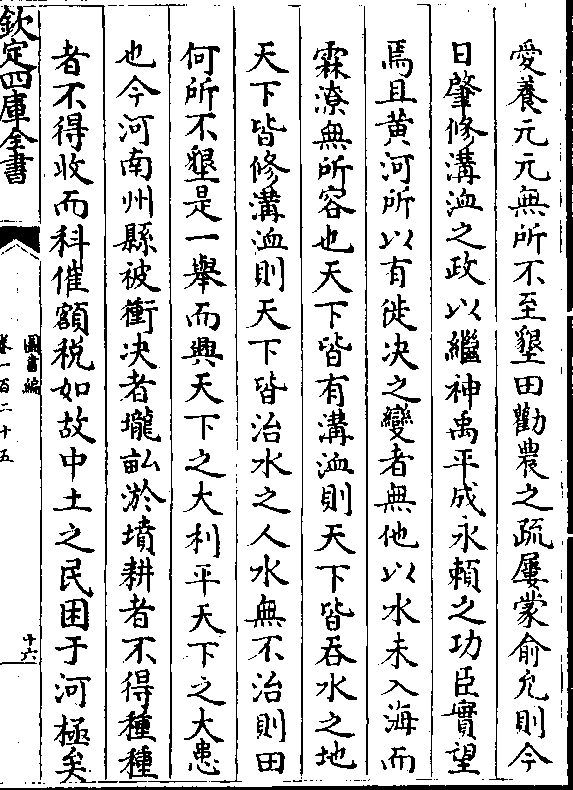 愛養元元無所不至墾田勸農之疏屢蒙俞允則今
日肇修溝洫之政以繼神禹平成永頼之功臣實望
焉且黄河所以有徙决之變者無他以水未入海而
霖潦無所容也天下皆有溝洫則天下皆吞水之地
天下皆修溝洫則天下皆治水之人水無不治則田
何所不墾是一舉而興天下之大利平天下之大患
也今河南州縣被衝决者壠畝淤墳耕者不得種種
者不得收而科催額税如故中土之民困于河極矣
欽定四庫全書
圖書編
卷一百二十五
十六